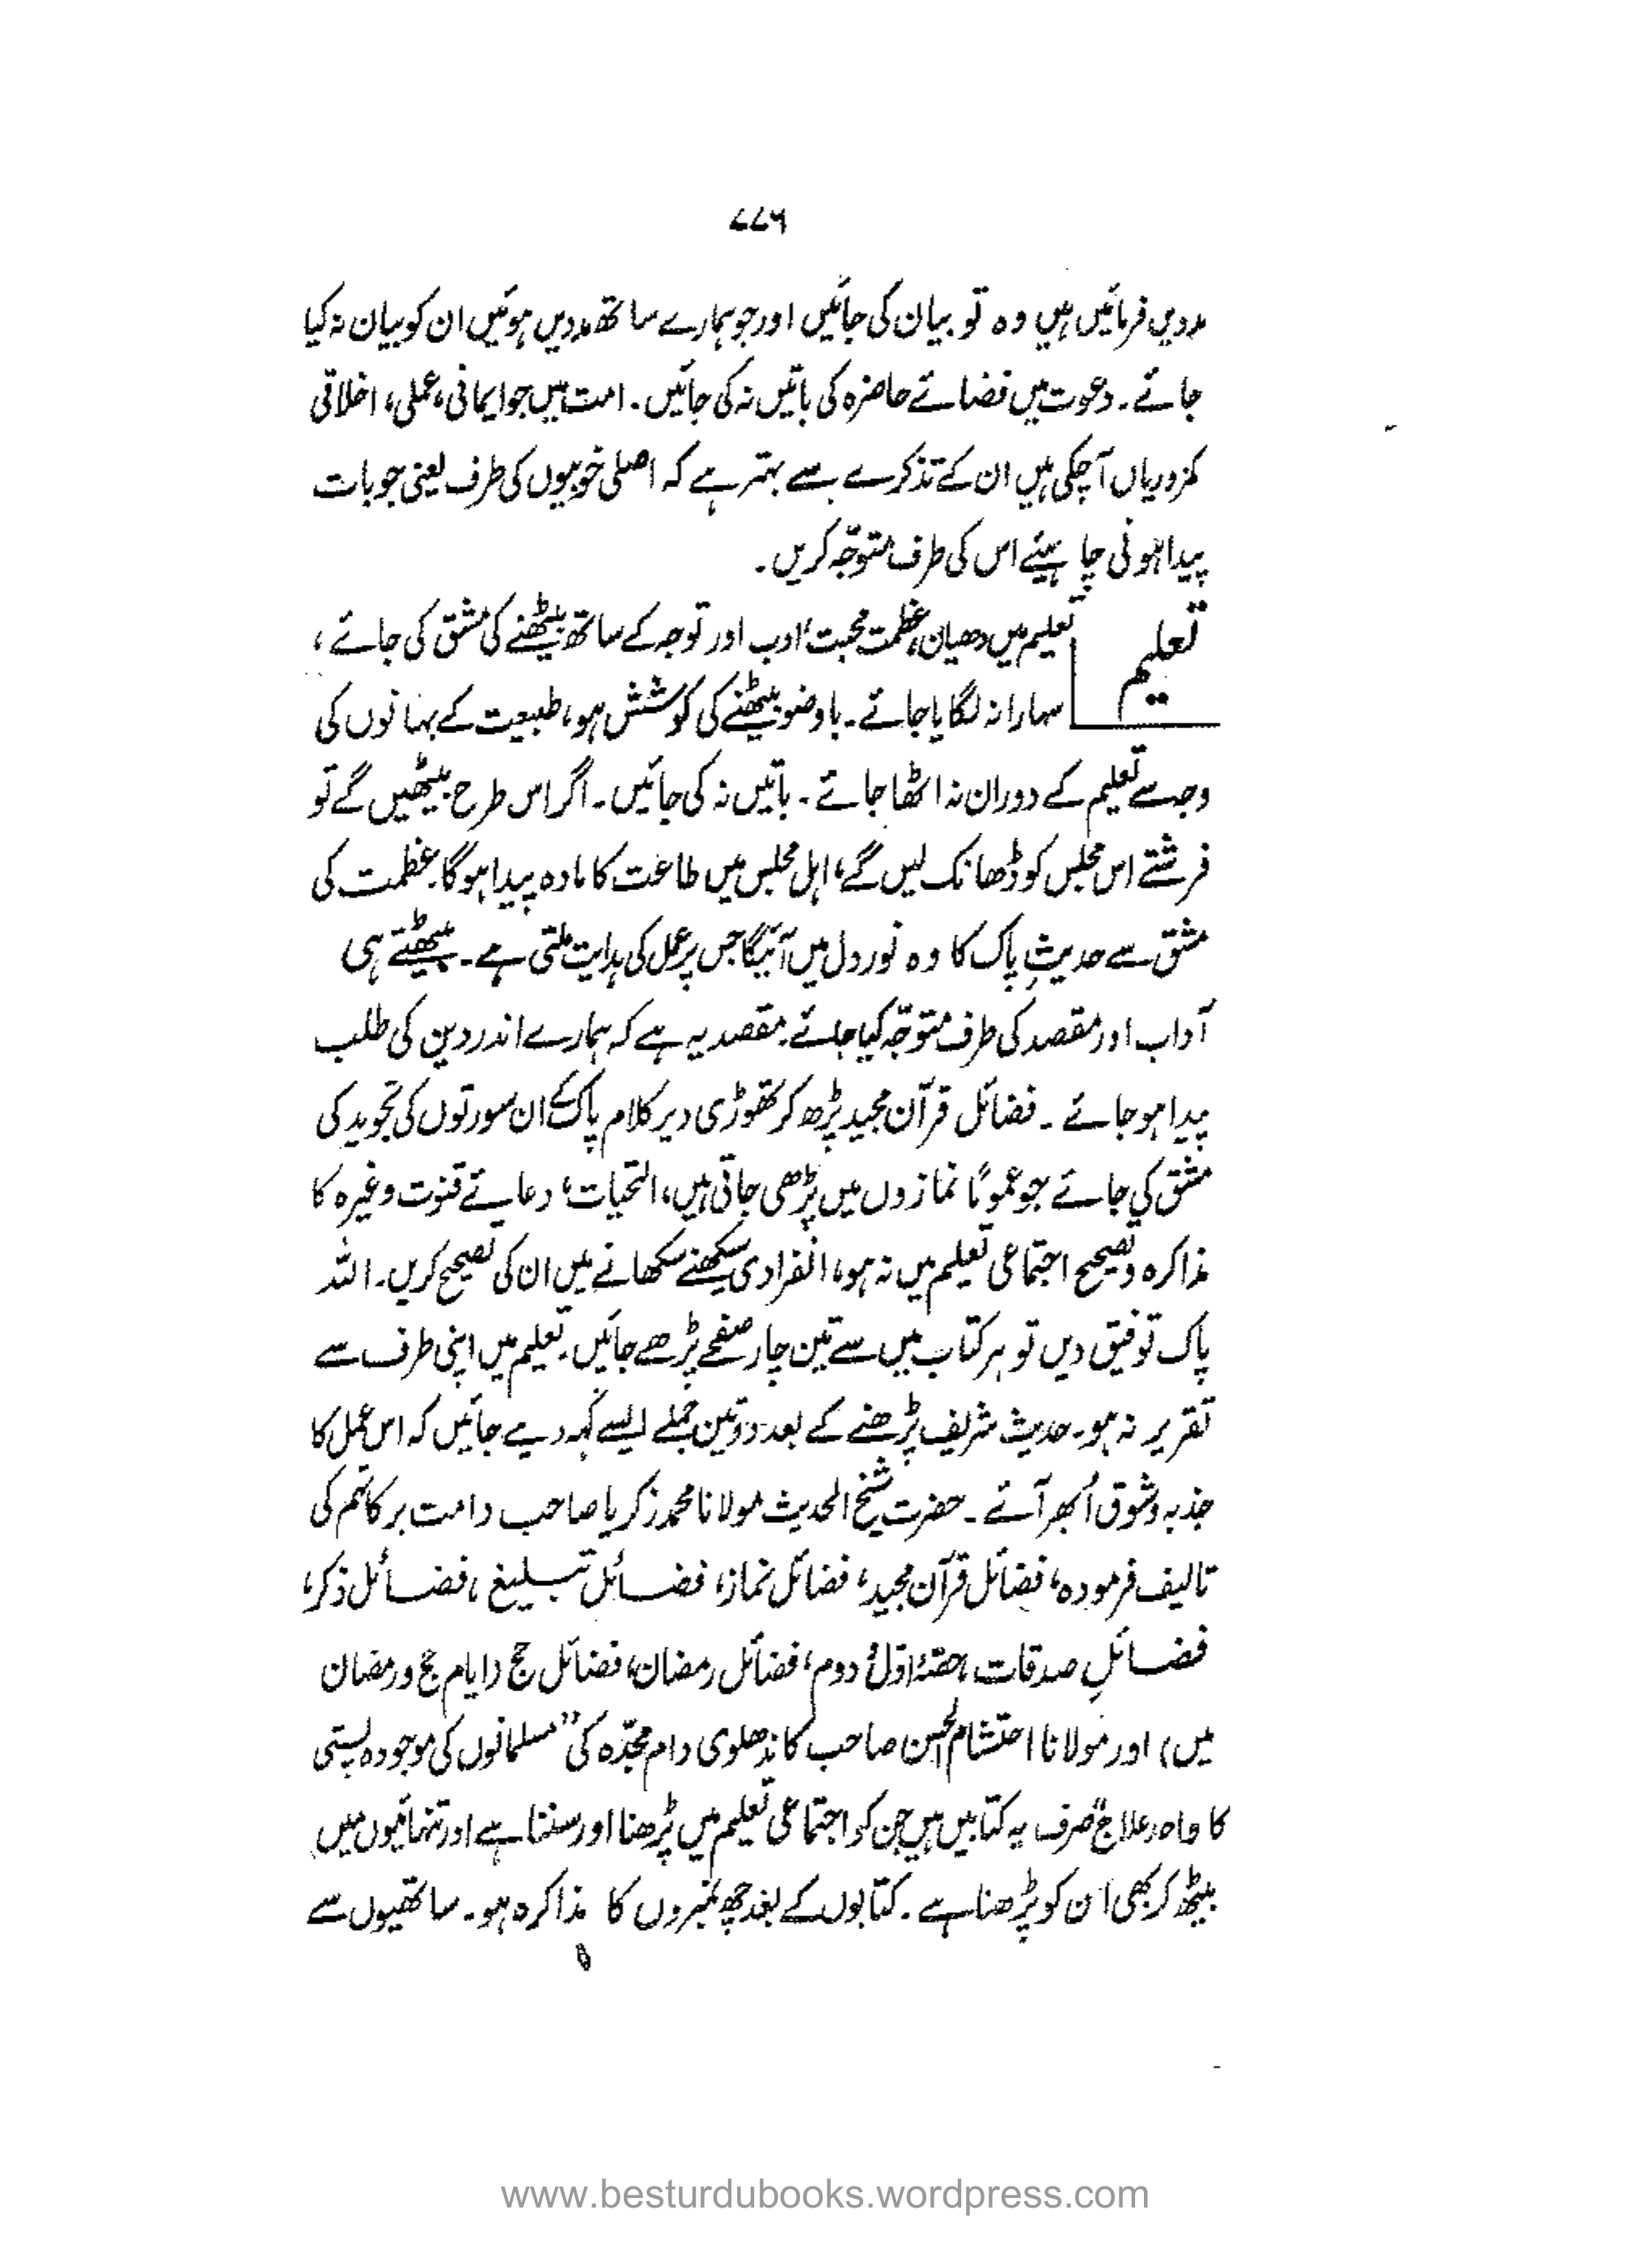 ۷۷۶
مددیں فرمائیں ہیں وہ تو بیان کی جائیں اور جو ہمارے ساتھ مددیں ہوئیں ان کو بیان نہ کیا
جائے۔ دعوت میں فضائے حاضرہ کی باتیں نہ کی جائیں۔ امت میں جو ایمانی، عملی، اخلاقی
کمزوریاں آچکی ہیں ان کے تذکرے سے بہتر ہے کہ اصلی خوبیوں کی طرف یعنی جو بات
پیدا ہونی چاہیئے اس کی طرف متوجّہ کریں۔
تعلیم
تعلیم میں دھیان، عظمت محبت، ادب اور توجہ کے ساتھ بیٹھنے کی مشق کی جائے،
سہارا نہ لگایا جائے۔ باوضو بیٹھنے کی کوشش ہو، طبیعت کے بہانوں کی
وجہ سے تعلیم کے دوران نہ اٹھا جائے۔ باتیں نہ کی جائیں۔ اگر اس طرح بیٹھیں گے تو
فرشتے اس مجلس کو ڈھانک لیں گے، اہل مجلس میں طاعت کا مادہ پیدا ہوگا۔ عظمت کی
مشق سے حدیثِ پاک کا وہ نور دل میں آئیگا جس پر عمل کی ہدایت ملتی ہے۔ بیٹھتے ہی
آداب اور مقصد کی طرف متوجّہ کیا جائے۔ مقصد یہ ہے کہ ہمارے اندر دین کی طلب
پیدا ہو جائے۔ فضائل قرآن مجید پڑھ کر تھوڑی دیر کلام پاک کے ان سورتوں کی تجوید کی
مشق کی جائے جو عموماً نمازوں میں پڑھی جاتی ہیں، التحیات، دعائے قنوت وغیرہ کا
مذاکرہ و تصحیح اجتماعی تعلیم میں نہ ہو، انفرادی سیکھنے سکھانے میں ان کی تصحیح کریں۔ اللہ
پاک توفیق دیں تو ہر کتاب میں سے تین چار صفحے پڑھے جائیں۔ تعلیم میں اپنی طرف سے
تقریر نہ ہو۔ حدیث شریف پڑھنے کے بعد دو تین جملے ایسے کہہ دیے جائیں کہ اس عمل کا
جذبہ و شوق اُبھر آئے۔ حضرت شیخ الحدیث مولانا محمد زکریا صاحب دامت برکاتہم کی
تالیف فرمودہ، فضائل قرآن مجید، فضائل نماز، فضائل تبلیغ، فضائل ذکر،
فضائلِ صدقات حصّہ اوّل، دوم، فضائل رمضان، فضائل حج (ایام حج و رمضان
میں) اور مولانا احتشام الحسن صاحب کاندھلوی دام مجدّہ کی "مسلمانوں کی موجودہ پستی
کا واحد علاج" صرف یہ کتابیں ہیں جن کو اجتماعی تعلیم میں پڑھنا اور سننا ہے اور تنہائیوں میں
بیٹھ کر بھی ان کو پڑھنا ہے۔ کتابوں کے بعد چھ نمبروں کا مذاکرہ ہو۔ ساتھیوں سے
www.besturdubooks.wordpress.com